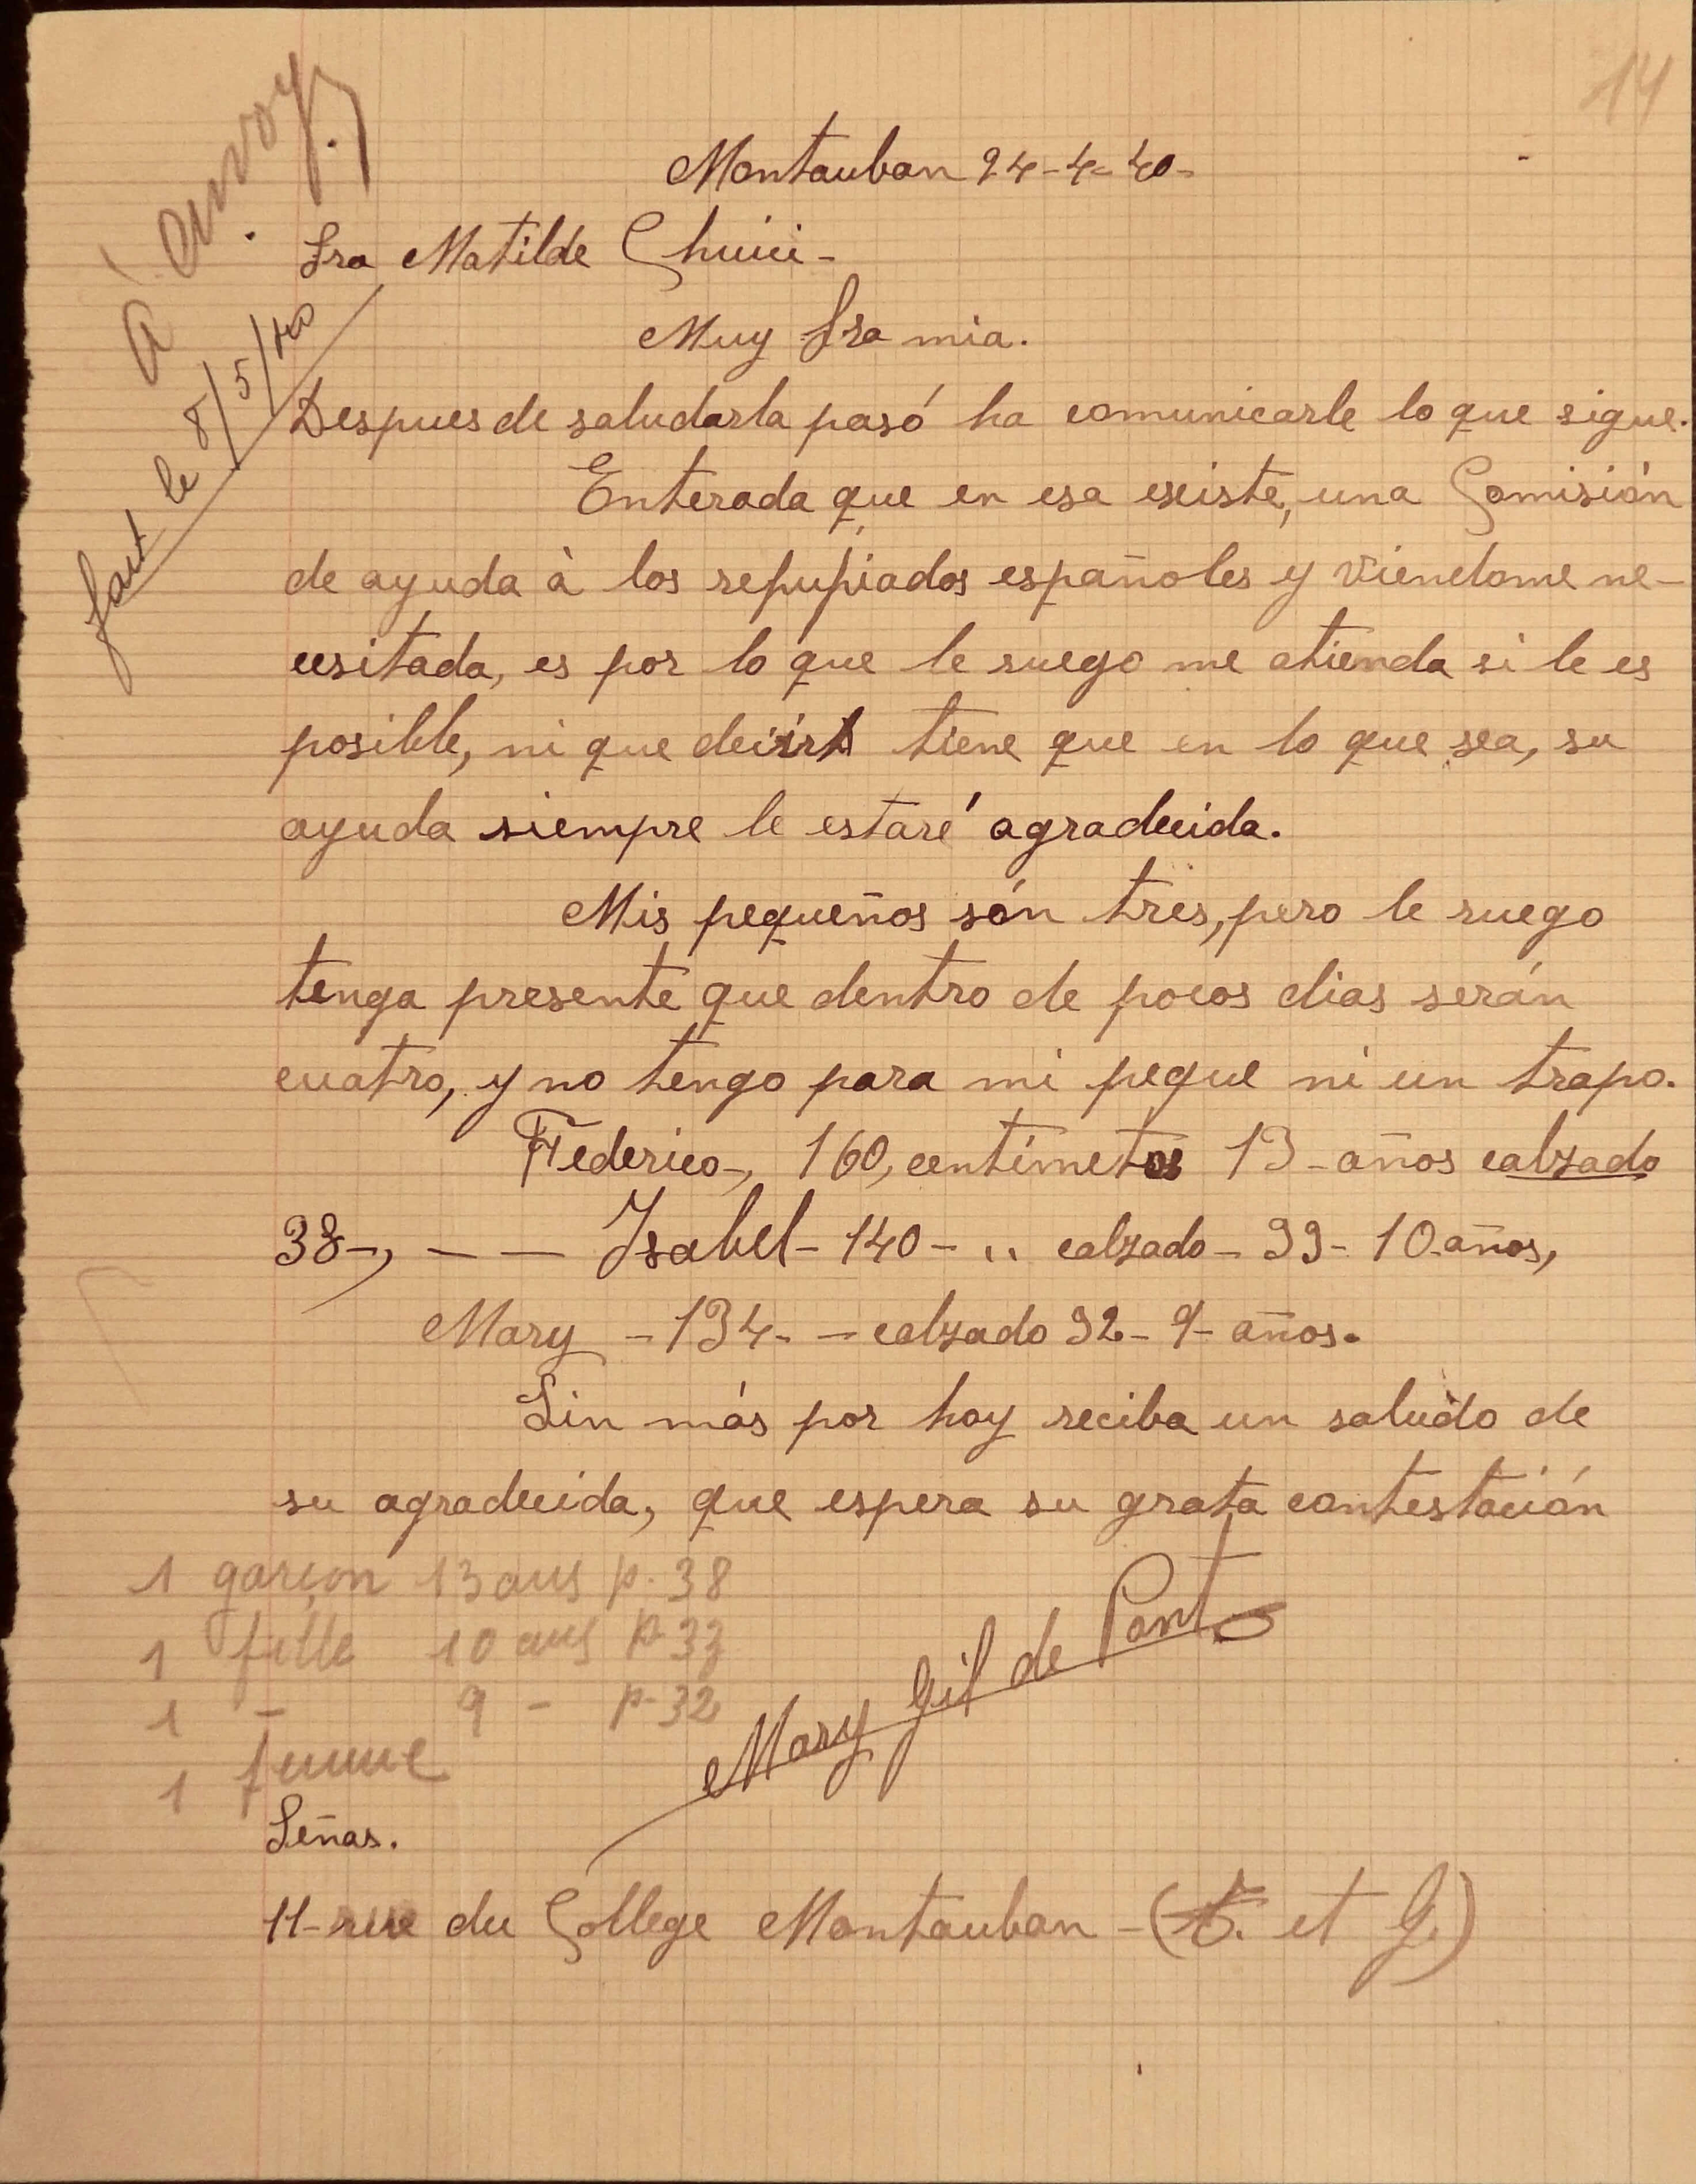 14
à envoy.
fait le 8/5/40
Montauban 24-4-40-
Sra Matilde Huici-
Muy Sra mia.
Despues de saludarla pasó ha comunicarle lo que sigue.
Enterada que en esa existe, una Comisión
de ayuda à los repupiados españoles y viendome ne-
cesitada, es por lo que le ruego me atienda si le es
posible, ni que decirt tiene que en lo que sea, su
ayuda siempre le estaré agradecida.
Mis pequeños són tres, pero le ruego
tenga presente que dentro de pocos dias serán
cuatro, y no tengo para mi peque ni un trapo.
Federico-, 160, centímetos 13-años calzado
38-, - - Isabel-140- " calzado-33-10 años,
Mary -134- - calzado 32-9- años.
Sin más por hoy reciba un saludo de
su agradecida, que espera su grata contestación
1 garçon 13 ans p. 38
1 fille 10 ans p. 33
1 - 9 - p-32
1 femme
Mary Gil de Pont
Señas.
11-rue du College Montauban-(T. et G.)